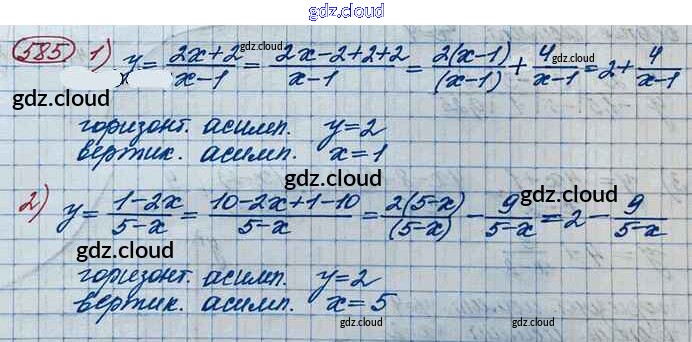 gdz.cloud
585 1) y = (2x+2)/(x-1) = (2x-2+2+2)/(x-1) = 2(x-1)/(x-1) + 4/(x-1) = 2 + 4/(x-1)
gdz.cloud gdz.cloud
gdz.cloud gdz.cloud
горизонт. асимп. y=2
вертик. асимп. x=1
gdz.cloud gdz.cloud
2) y = (1-2x)/(5-x) = (10-2x+1-10)/(5-x) = 2(5-x)/(5-x) - 9/(5-x) = 2 - 9/(5-x)
gdz.cloud gdz.cloud
горизонт. асимп. y=2
gdz.cloud
вертик. асимп. x=5
gdz.cloud gdz.cloud